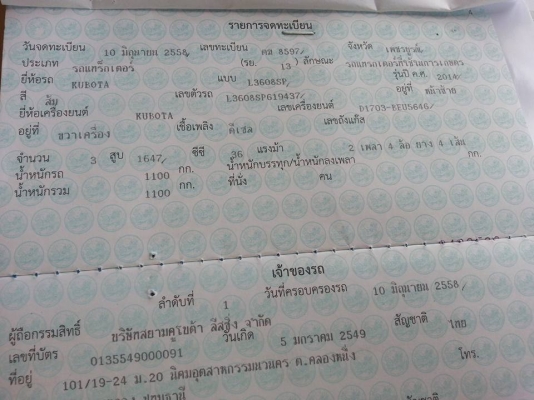 รายการจดทะเบียน
วันจดทะเบียน 10 มิถุนายน 2558 เลขทะเบียน ตม 8597/ จังหวัด เพชรบูรณ์
ประเภท รถแทรกเตอร์ (รย. 13) ลักษณะ รถแทรกเตอร์ที่ใช้ในการเกษตร
ยี่ห้อรถ KUBOTA แบบ L3608SP/ รุ่นปี ค.ศ. 2014/
สี ส้ม เลขตัวรถ L3608SP619437/ อยู่ที่ หน้าซ้าย
ยี่ห้อเครื่องยนต์ KUBOTA เลขเครื่องยนต์ D1703-KEU5646/
อยู่ที่ ขวาเครื่อง เชื้อเพลิง ดีเซล เลขถังแก๊ส
จำนวน 3 สูบ 1647/ ซีซี 36 แรงม้า 2 เพลา 4 ล้อ ยาง 4 เส้น
น้ำหนักรถ 1100 กก. น้ำหนักบรรทุก/น้ำหนักลงเพลา กก.
น้ำหนักรวม 1100 กก. ที่นั่ง คน
เจ้าของรถ
ลำดับที่ 1 วันที่ครอบครองรถ 10 มิถุนายน 2558/
ผู้ถือกรรมสิทธิ์ บริษัทสยามคูโบต้า ลีสซิ่ง จำกัด สัญชาติ ไทย
เลขที่บัตร 0135549000091 วันเกิด 5 มกราคม 2549
ที่อยู่ 101/19-24 ม.20 นิคมอุตสาหกรรมนวนคร ต.คลองหนึ่ง โทร.